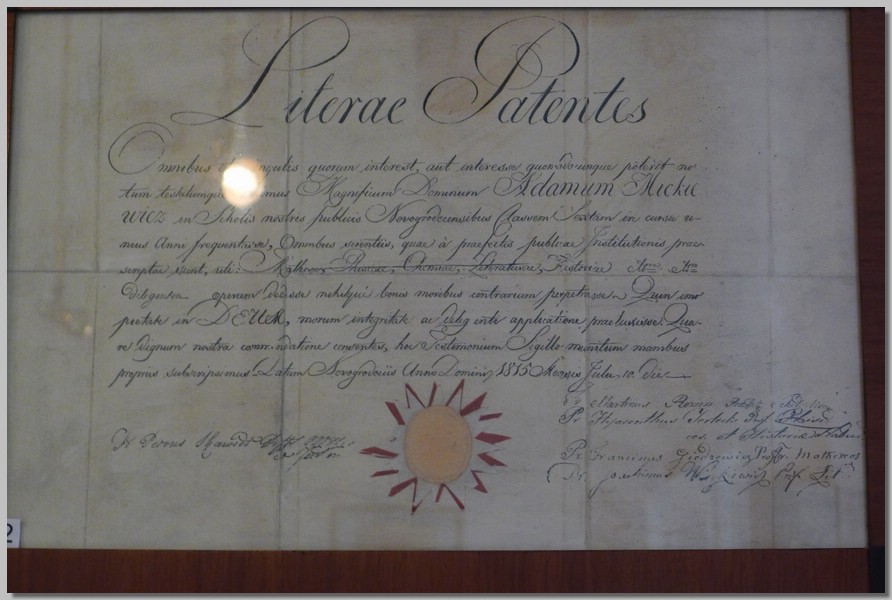 Literae Patentes
Omnibus et singulis quorum interest, aut interesse quomodocunque poterit no-
tum testatumque Magnificum Dominum Adamum Mickie
wicz in Scholis nostris publicis Novogrodecensibus Classem Sextam in cursu u-
nius Anni frequentasse, Omnibus scientiis, quae à praefectis publicae Institutionis prae-
scriptae sunt, uti: Mathesi, Physicae, Chemiae, Literaturae, Historiae
operam dedisse bonis moribus contrarium perpetrasse. Quin imo
pietate in DEUM, morum integritate ac applicatione praeluxisse. Qua-
re dignum nostra commendatione censentes, hoc Testimonium Sigillo munitum manibus
propriis subscripsimus Datum Novogrodeciis Anno Domini 1815 Mensis Julii 10 die
Martinus
Pr Hyacinthus Prof. Phisic
et
Pr. Franciscus Prof. Mathemat
Pr. Prof. Lit
Petrus
2